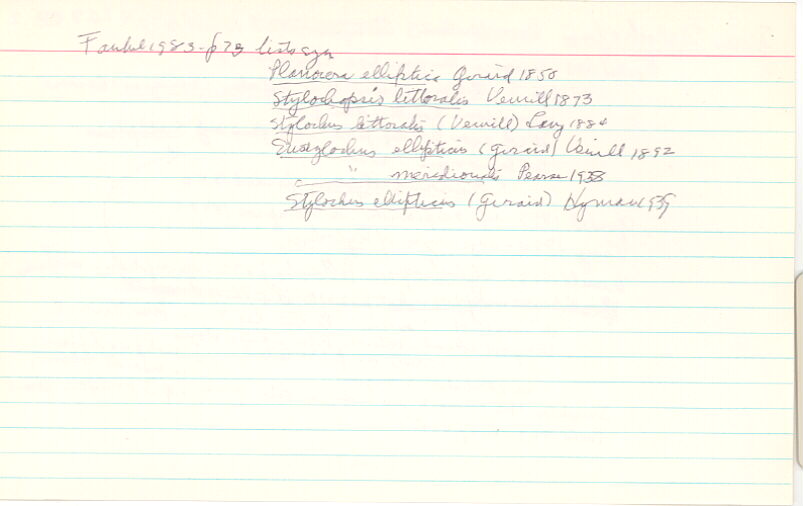 Faubel 1983 - p73 lists syn
Planocera elliptica Girard 1850
Stylochopsis littoralis Verrill 1873
Stylochus littoralis (Verrill) Lang 1884
Eustylochus ellipticus (Girard) Verrill 1892
" meridionalis Pearse 1938
Stylochus ellipticus (Girard) Hyman 1939